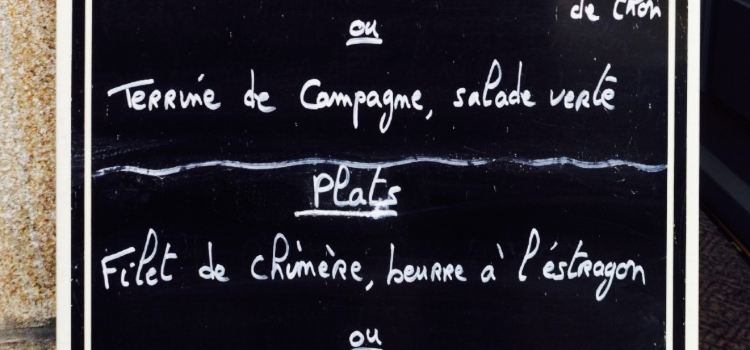 de Chon
ou
Terrine de Campagne, salade verte
Plats
Filet de chimère, beurre à l'éstragon
ou